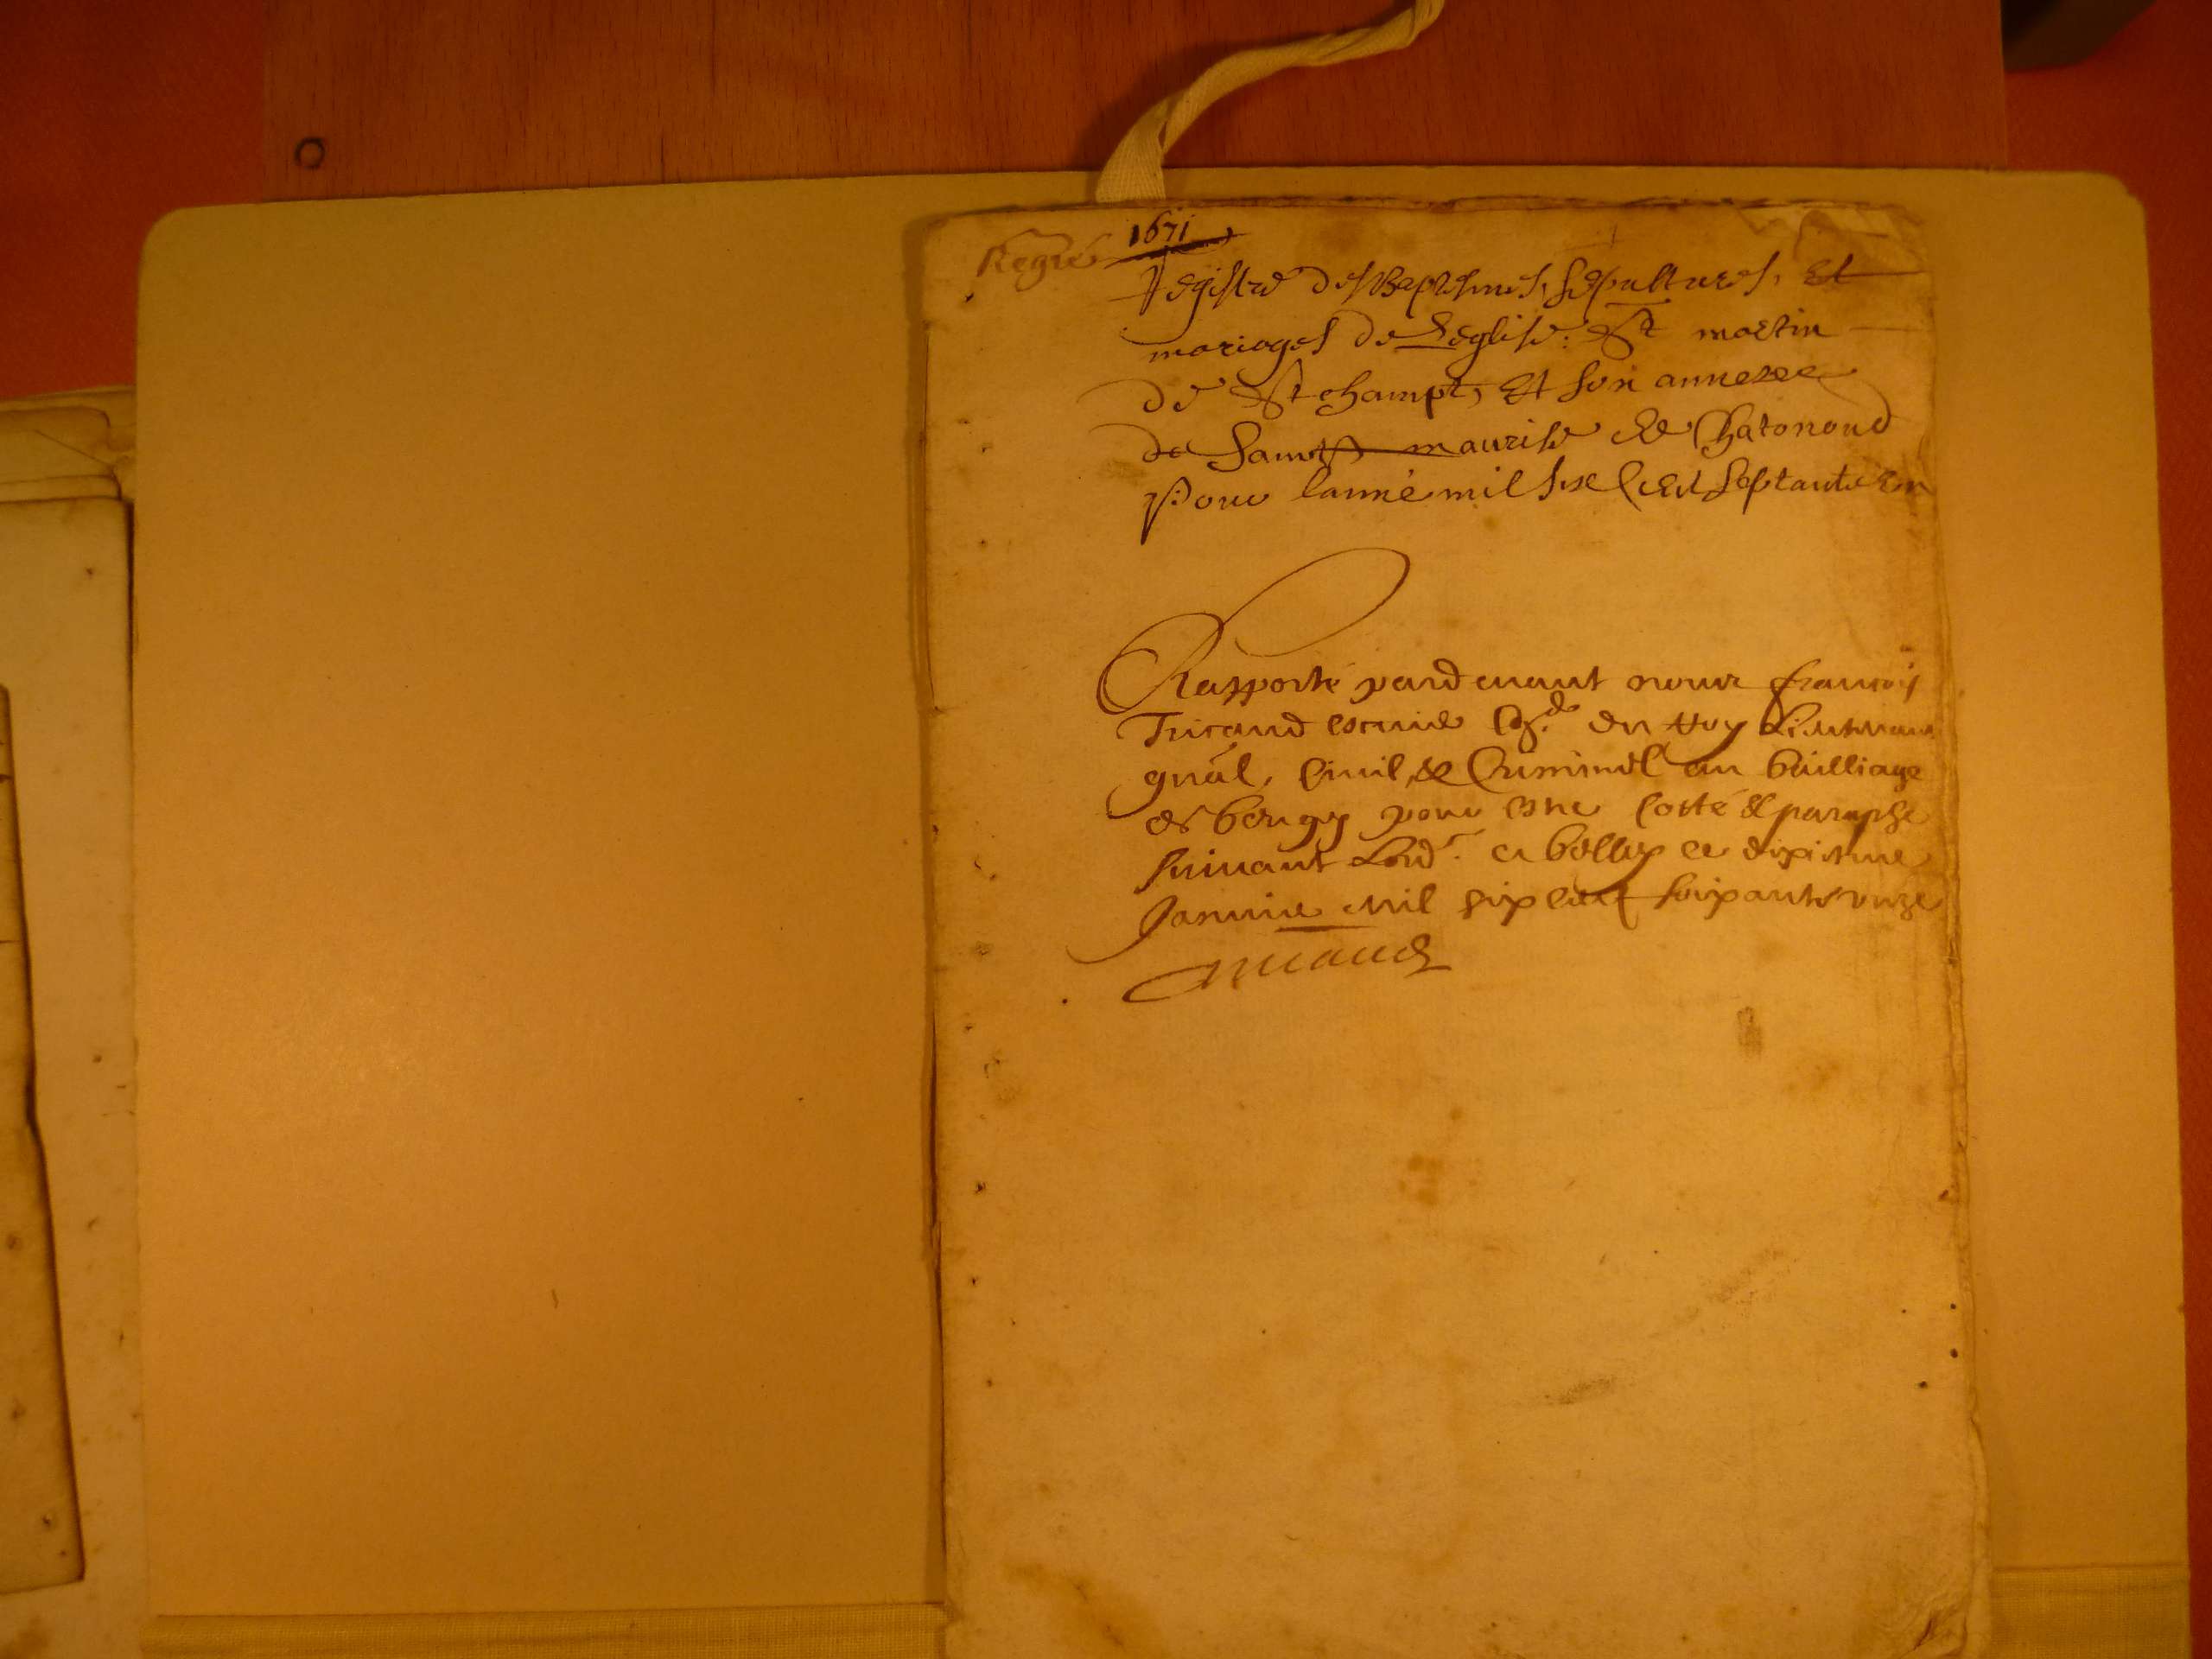 1671
Registre des Baptesmes, sepultures, Et
mariages de Leglise St martin
de St champt, Et son annexee
de Sainct maurise de Chatonoud
Pour lanné mil six Cent Septante Un
Rapporté pardeuant nous françois
Tricaud escuier du Roy Lieutenant
gnãl, Ciuil & Criminel au bailliage
de beugey pour estre Cotté & paraphé
suiuant Lordce a belley ce dixiesme
Januier Mil six cent soixante onze
Tricaud